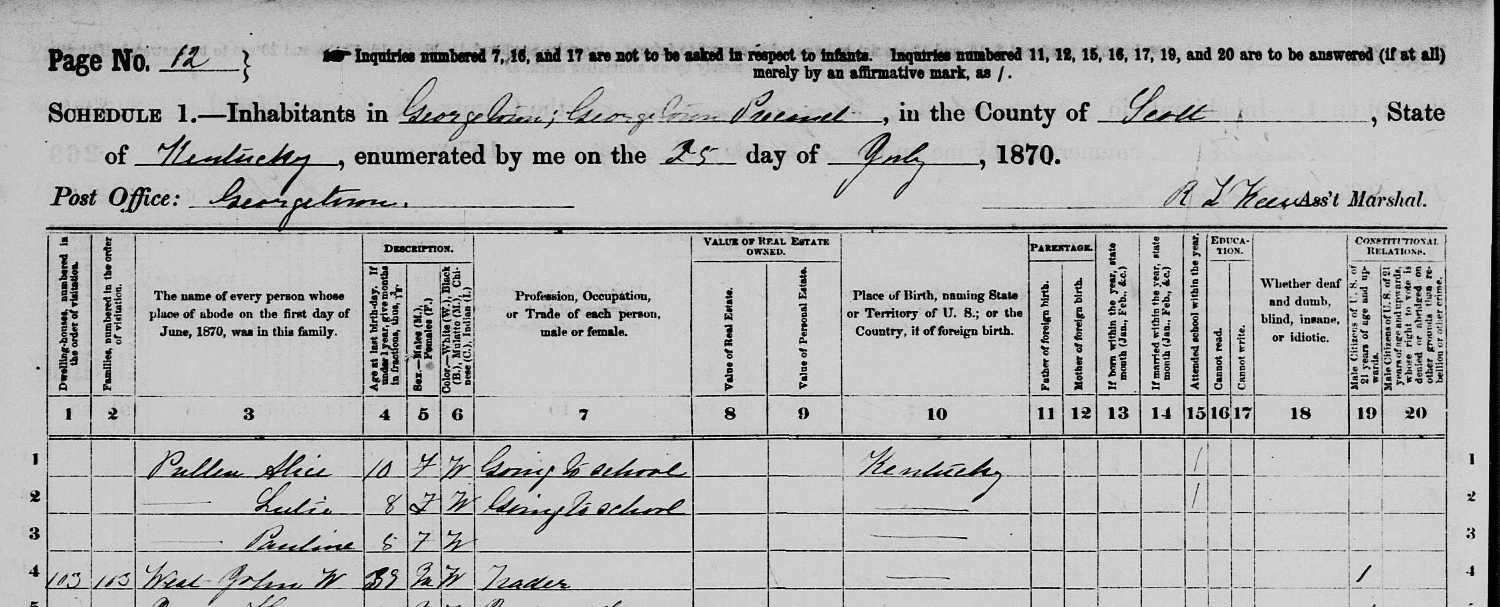 Page No. 12 }
☛ Inquiries numbered 7, 16, and 17 are not to be asked in respect to infants. Inquiries numbered 11, 12, 15, 16, 17, 19, and 20 are to be answered (if at all)
merely by an affirmative mark, as /.
SCHEDULE 1.—Inhabitants in Georgetown; Georgetown Precinct, in the County of Scott, State
of Kentucky, enumerated by me on the 25 day of July, 1870.
Post Office: Georgetown.
R L Ass't Marshal.
Dwelling-houses, numbered in the order of visitation.
Families, numbered in the order of visitation.
The name of every person whose place of abode on the first day of June, 1870, was in this family.
DESCRIPTION.
Age at last birth-day. If under 1 year, give months in fractions, thus, 3/12.
Sex.—Males (M.), Females (F.)
Color.—White (W.), Black (B.), Mulatto (M.), Chinese (C.), Indian (I.)
Profession, Occupation, or Trade of each person, male or female.
VALUE OF REAL ESTATE OWNED.
Value of Real Estate.
Value of Personal Estate.
Place of Birth, naming State or Territory of U. S.; or the Country, if of foreign birth.
PARENTAGE.
Father of foreign birth.
Mother of foreign birth.
If born within the year, state month (Jan., Feb., &c.)
If married within the year, state month (Jan., Feb., &c.)
Attended school within the year.
EDUCATION.
Cannot read.
Cannot write.
Whether deaf and dumb, blind, insane, or idiotic.
CONSTITUTIONAL RELATIONS.
Male Citizens of U. S. of 21 years of age and upwards.
Male Citizens of U. S. of 21 years of age and upwards, whose right to vote is denied or abridged on other grounds than rebellion or other crime.
1 2 3 4 5 6 7 8 9 10 11 12 13 14 15 16 17 18 19 20
1 Pullen Alice 10 F W Going to school Kentucky / 1
2 — Lulie 8 F W Going to school — / 2
3 — Pauline F W — 3
4 103 103 West John W 39 M W Trader — / 4
5